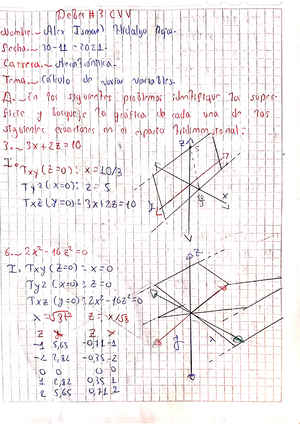 Deber #3 CVV
Nombre.- Alex Ismael Hidalgo
Fecha.- 30-11-2021
Carrera.- Mecatrónica.
Tema.- Cálculo de varias variables.
A.- En los siguientes problemas identifique la super-
ficie y bosqueje la gráfica de cada una de las
siguientes ecuaciones en el espacio tridimensional:
3.- 3x+2z=10
I. Txy (z=0): x=10/3
Tyz (x=0): z=5
Txz (y=0): 3x+2z=10
z
5
y
10/3
x
z
6.- 2x²-16z²=0
I. Txy (z=0): x=0
Tyz (x=0): z=0
Txz (y=0): 2x²-16z²=0
z = x/√8
z x z x
-1 5,65 -0,71 -1
-2 2,82 -0,35 -2
0 0 0 0
1 2,82 0,35 1
2 5,65 0,71 2
z
y